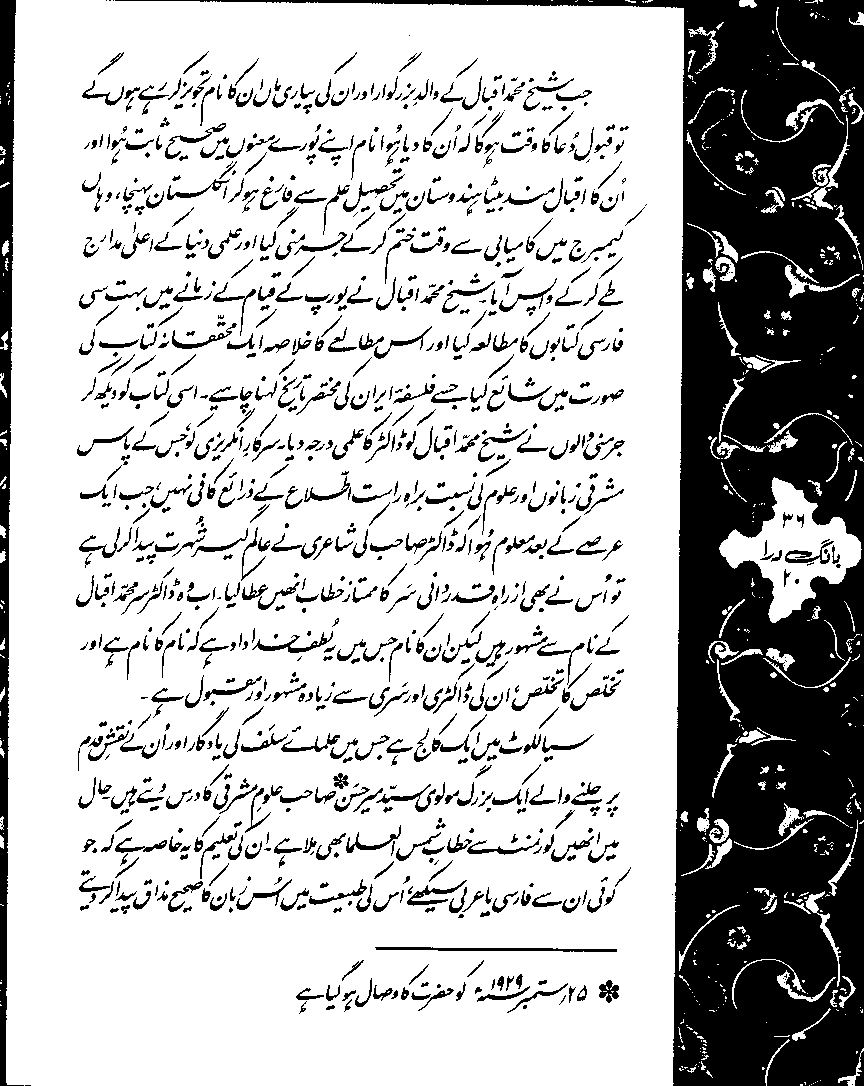 جب شیخ محمّد اقبال کے والدِ بزرگوار اور ان کی پیاری ماں ان کا نام تجویز کر رہے ہوں گے
تو قبول دُعا کا وقت ہوگا کہ اُن کا دیا ہُوا نام اپنے پُورے معنوں میں صحیح ثابت ہُوا اور
اُن کا اقبال مند بیٹا ہندوستان میں تحصیلِ علم سے فارغ ہو کر انگلستان پہنچا، وہاں
کیمبرج میں کامیابی سے وقت ختم کر کے جرمنی گیا اور علمی دنیا کے اعلیٰ مدارج
طے کر کے واپس آیا۔ شیخ محمّد اقبال نے یورپ کے قیام کے زمانے میں بہت سی
فارسی کتابوں کا مطالعہ کیا اور اس مطالعے کا خلاصہ ایک محقّقانہ کتاب کی
صورت میں شائع کیا جسے فلسفۂ ایران کی مختصر تاریخ کہنا چاہیے۔ اسی کتاب کو دیکھ کر
جرمنی والوں نے شیخ محمّد اقبال کو ڈاکٹر کا علمی درجہ دیا۔ سرکارِ انگریزی کو جس کے پاس
مشرقی زبانوں اور علوم کی نسبت براہِ راست اطّلاع کے ذرائع کافی نہیں، جب ایک
عرصے کے بعد معلوم ہُوا کہ ڈاکٹر صاحب کی شاعری نے عالم گیر شُہرت پیدا کر لی ہے
تو اُس نے بھی از راہِ قدردانی سَر کا ممتاز خطاب انھیں عطا کیا۔ اب وہ ڈاکٹر سر محمّد اقبال
کے نام سے مشہور ہیں لیکن ان کا نام جس میں یہ لُطفِ خداداد ہے کہ نام کا نام ہے اور
تخلّص کا تخلّص، ان کی ڈاکٹری اور سَری سے زیادہ مشہور اور مقبول ہے۔
سیالکوٹ میں ایک کالج ہے جس میں علمائے سلَف کی یادگار اور اُن کے نقشِ قدم
پر چلنے والے ایک بزرگ مولوی سیّد میر حَسَن* صاحب علومِ مشرقی کا درس دیتے ہیں۔ حال
میں انھیں گورنمنٹ سے خطابِ شمس العلما بھی مِلا ہے۔ ان کی تعلیم کا یہ خاصہ ہے کہ جو
کوئی ان سے فارسی یا عربی سیکھے، اُس کی طبیعت میں اُس زبان کا صحیح مذاق پیدا کر دیتے
* ۲۵؍ستمبر ۱۹۲۹ء کو حضرت کا وصال ہو گیا ہے
۳۶
بانگِ درا
۲۰